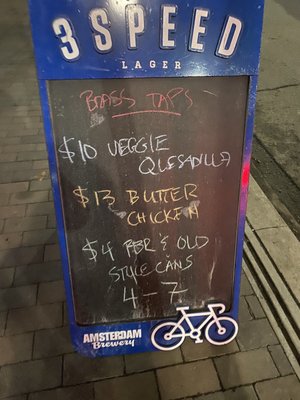 3 SPEED
LAGER
BRASS TAPS
$10 VEGGIE
QUESADILLA
$13 BUTTER
CHICKEN
$4 PBR'S OLD
STYLE CANS
4-7
AMSTERDAM
Brewery